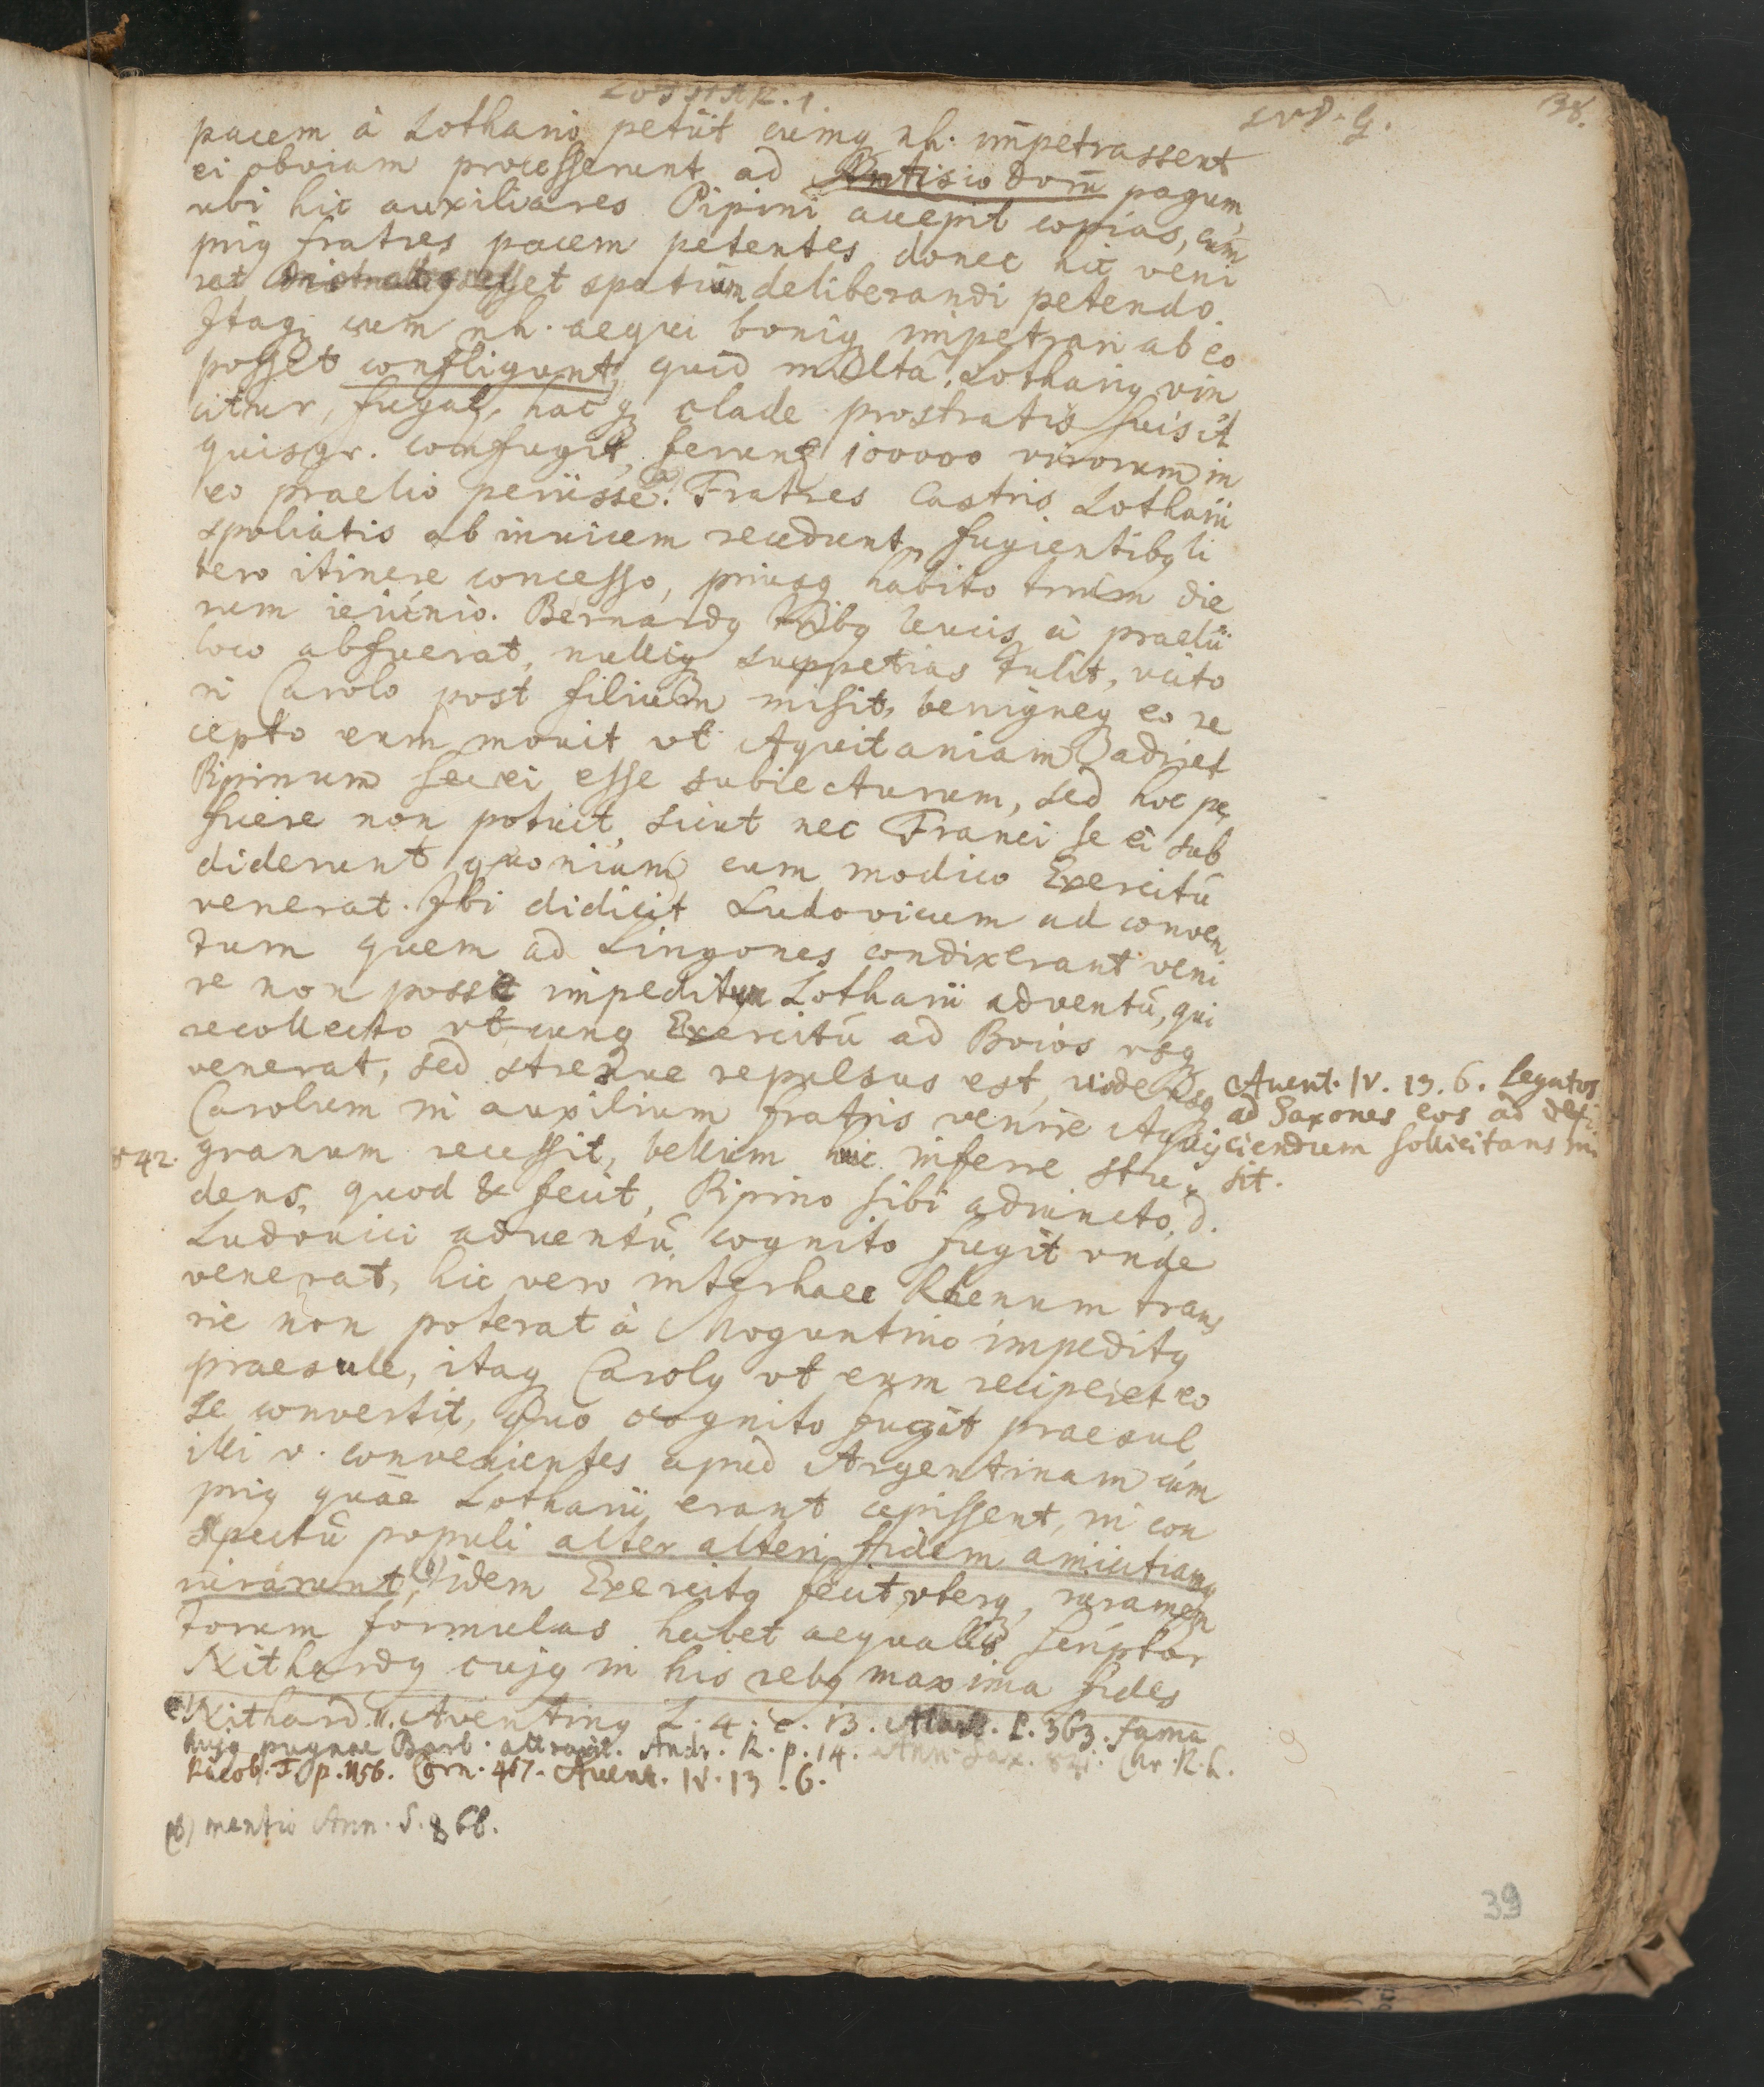 LOTHAR. 1.
LVD. G.
38.
pacem à Lothario petiit cumq nh. impetrassent
ei obviam processerunt ad Antisiodorū pagum
ubi hic auxiliares Pipini accepit copias, cum
priq fratres pacem petentes donec hic veni
ret spatium deliberandi petendo.
Itaq cum nh. aequi boniq impetrari ab eo
posset confligunt, quid multa, Lothariq vin
citur, fugat, hac q clade prostratis suis it
quisqr. confugit, ferunt 100000 virorum in
eo praelio periisse (a). Fratres Castris Lotharii
spoliatis ab invicem recedunt, fugientibq li
bero itinere concesso, priusq habito trium die
rum ieiunio. Bernardq tribq leucis à praelii
loco abfuerat, nulliq suppetias tulit, victo
ri Carolo post filium misit, benigneq eo re
cepto eum monuit vt Aquitaniam adiret
Pipinum se ei esse subiecturum, sed hoc per
ficere non potuit, sicut nec Franci se ei sub
diderunt quoniam cum modico Exercitū
venerat. Ibi didicit Ludovicum ad conven
tum quem ad Lingones condixerant veni
re non posse impeditum Lotharii adventū, qui
recollecto vtcunq Exercitū ad Boios vsq
venerat, sed strenue repulsus est, vide
Carolum in auxilium fratris venire Aquis
842. granum recessit, bellum huic inferre stu
dens, quod & fecit, Pipino sibi adiuncto, d.
Ludovici adventū cognito fugit vnde
venerat, hic vero interhaec Rhenum trans
ire non poterat à Moguntino impeditq
praesule, itaq Carolq vt eum reciperet eo
se convertit, quo cognito fugit praesul
illi v. convenientes apud Argentinam cum
priq quae Lotharii erant cepissent, in con
spectū populi alter alteri fidem amicitiamq
iurarunt, (b) idem Exercitq fecit vterq, iuramen
torum formulas habet aequalis scriptor
Nithardq cujq in his rebq maxima fides
Avent. IV. 13. 6. Legatos
ad Saxones eos ad defi
ciendum sollicitans mi
sit.
a) Nithard. II. Aventinq L. 4. c. 13. p. 363. fama
hujq pugnae Andr. R. p. 14. Ann. Sax. 841. Chr. R. h.
Iacob. F. p. 1156. Corn. 457. Avent. IV. 13. 6.
(b) mentio Ann. S. 868.
39